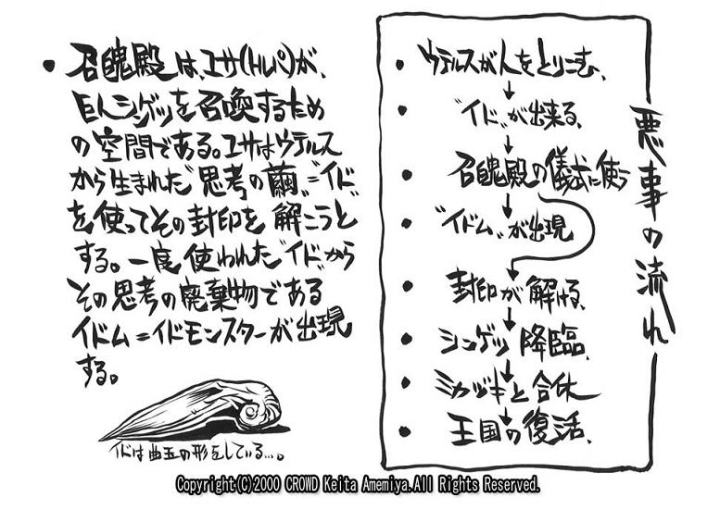 • 召醜殿は、ユサ(トルパ)が、
巨人シンゲツを召喚するため
の空間である。ユサはウテルス
から生まれた"思考の繭"=イド"
を使ってその封印を解こうと
する。一度使われた"イド"から
その思考の廃棄物である
イドム=イドモンスターが出現
する。
イドは曲玉の形をしている…。
悪事の流れ
• ウテルスが人をとりこむ、
• "イド"が出来る、
• 召醜殿の儀式に使う
• "イドム"が出現
• 封印が解ける、
• シンゲツ降臨、
• ミカヅキと合体
• 王国の復活、
Copyright(C)2000 CROWD Keita Amemiya.All Rights Reserved.